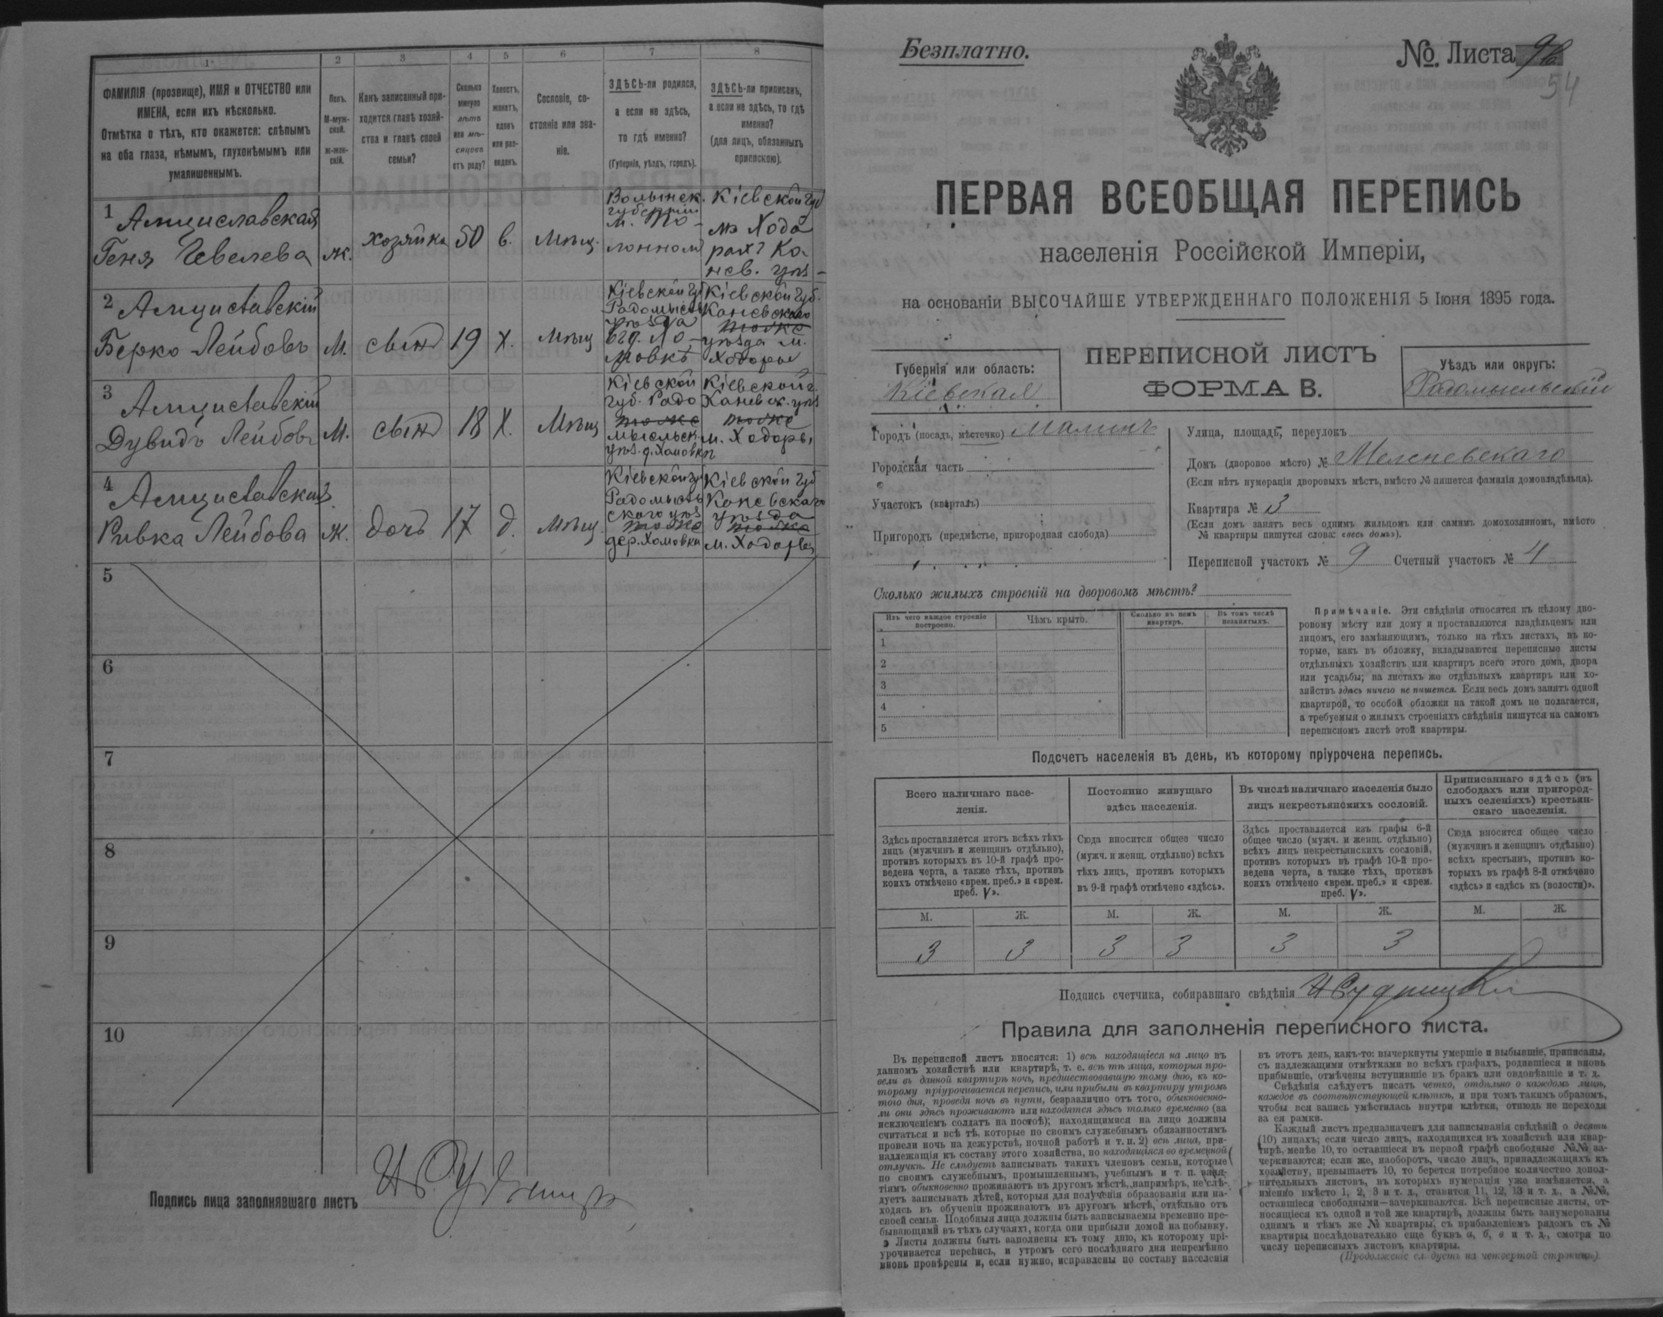 1
2
3
4
5
6
7
8
ФАМИЛІЯ (прозвище), ИМЯ и ОТЧЕСТВО или
ИМЕНА, если ихъ нѣсколько.
Отмѣтка о тѣхъ, кто окажется: слѣпымъ
на оба глаза, нѣмымъ, глухонѣмымъ или
умалишеннымъ.
Полъ.
М-муж-
ской.
ж-жен-
скій.
Какъ записанный при-
ходится главѣ хозяй-
ства и главѣ своей
семьи?
Сколько
минуло
лѣтъ
или мѣ-
сяцевъ
отъ роду?
Холостъ,
женатъ,
вдовъ
или раз-
веденъ.
Сословіе, со-
стояніе или зва-
ніе.
ЗДѢСЬ-ли родился,
а если не здѣсь,
то гдѣ именно?
(Губернія, уѣздъ, городъ).
ЗДѢСЬ-ли приписанъ,
а если не здѣсь, то гдѣ
именно?
(для лицъ, обязанныхъ
припискою).
1
Амциславская
Геня Гевелева
ж.
хозяйка
50
в.
Мѣщ.
Волынск.
губерніи
м. По-
лонномъ
Кіевской губ
мѣ Ходо
рахъ Ка-
нев. уѣз-
2
Амциславскій
Берко Лейбовъ
М.
сынъ
19
Х.
Мѣщ
Кіевской гу
Радомысль
уѣзда
Кіевской губ.
Каневскаго
тоже
уѣзда м.
Ходоры
3
Амциславскій
Дувидъ Лейбовъ
М.
сынъ
18
Х.
Мѣщ
Кіевской
губ. Радо
тоже
мысльск
уѣз. д. Хамовкѣ
Кіевской г
Каневск. уѣз
тоже
м. Ходоры
4
Амциславский
Ривка Лейбова
ж.
дочь
17
д.
мѣщ
Кіевской гу
Радомысль
скаго уѣз
тоже
дер. Хомовки
Кіевской губ
Каневскаго
уѣзда
тоже
м. Ходоры
5
6
7
8
9
10
Подпись лица заполнявшаго листъ
Безплатно.
№ Листа 9в
54
ПЕРВАЯ ВСЕОБЩАЯ ПЕРЕПИСЬ
населенія Россійской Имперіи,
на основаніи ВЫСОЧАЙШЕ УТВЕРЖДЕННАГО ПОЛОЖЕНІЯ 5 Іюня 1895 года.
Губернія или область:
Кіевская
ПЕРЕПИСНОЙ ЛИСТЪ
ФОРМА В.
Уѣздъ или округъ:
Радомысльскій
Городъ (посадъ, мѣстечко) Малинъ
Городская часть
Участокъ (кварталъ)
Пригородъ (предмѣстье, пригородная слобода)
Улица, площадь, переулокъ
Домъ (дворовое мѣсто) №
(Если нѣтъ нумераціи дворовыхъ мѣстъ, вмѣсто № пишется фамилія домовладѣльца).
Квартира № 3
(Если домъ занятъ весь однимъ жильцомъ или самимъ домохозяиномъ, вмѣсто
№ квартиры пишутся слова: «весь домъ»).
Переписной участокъ № 9 Счетный участокъ № 4
Сколько жилыхъ строеній на дворовомъ мѣстѣ?
Изъ чего каждое строеніе
построено.
Чѣмъ крыто.
Сколько въ немъ
квартиръ.
Въ томъ числѣ
незанятыхъ.
1
2
3
4
5
Примѣчаніе. Эти свѣдѣнія относятся къ цѣлому дво-
ровому мѣсту или дому и проставляются владѣльцемъ или
лицомъ, его замѣняющимъ, только на тѣхъ листахъ, въ ко-
торые, какъ въ обложку, вкладываются переписные листы
отдѣльныхъ хозяйствъ или квартиръ всего этого дома, двора
или усадьбы; на листахъ же отдѣльныхъ квартиръ или хо-
зяйствъ здѣсь ничего не пишется. Если весь домъ занятъ одной
квартирой, то особой обложки на такой домъ не полагается,
а требуемыя о жилыхъ строеніяхъ свѣдѣнія пишутся на самомъ
переписномъ листѣ этой квартиры.
Подсчетъ населенія въ день, къ которому пріурочена перепись.
Всего наличнаго насе-
ленія.
Постоянно живущаго
здѣсь населенія.
Въ числѣ наличнаго населенія было
лицъ некрестьянскихъ сословій.
Приписаннаго здѣсь (въ
слободахъ или пригород-
ныхъ селеніяхъ) крестьян-
скаго населенія.
Здѣсь проставляется итогъ всѣхъ тѣхъ
лицъ (мужчинъ и женщинъ отдѣльно),
противъ которыхъ въ 10-й графѣ про-
ведена черта, а также тѣхъ, противъ
коихъ отмѣчено «врем. преб.» и «врем.
преб. V».
Сюда вносится общее число
(мужч. и женщ. отдѣльно) всѣхъ
тѣхъ лицъ, противъ которыхъ
въ 9-й графѣ отмѣчено «здѣсь».
Здѣсь проставляется изъ графы 6-й
общее число (мужч. и женщ. отдѣльно)
всѣхъ лицъ некрестьянскихъ сословій,
противъ которыхъ въ графѣ 10-й про-
ведена черта, а также тѣхъ, противъ
коихъ отмѣчено «врем. преб.» и «врем.
преб. V».
Сюда вносится общее число
(мужчинъ и женщинъ отдѣльно)
всѣхъ крестьянъ, противъ ко-
торыхъ въ графѣ 8-й отмѣчено
«здѣсь» и «здѣсь къ (волости)».
М. Ж. М. Ж. М. Ж. М. Ж.
3 3 3 3 3 3
Подпись счетчика, собиравшаго свѣдѣнія
Правила для заполненія переписного листа.
Въ переписной листъ вносятся: 1) всѣ находящіеся на лицо въ
данномъ хозяйствѣ или квартирѣ, т. е. всѣ тѣ лица, которыя про-
вели въ данной квартирѣ ночь, предшествовавшую тому дню, къ ко-
торому пріурочивается перепись, или прибыли въ квартиру утромъ
того дня, проведя ночь въ пути, безразлично отъ того, обыкновенно-
ли они здѣсь проживаютъ или находятся здѣсь только временно (за
исключеніемъ солдатъ на постоѣ); находящимися на лицо должны
считаться и всѣ тѣ, которые по своимъ служебнымъ обязанностямъ
провели ночь на дежурствѣ, ночной работѣ и т. п. 2) всѣ лица, при-
надлежащія къ составу этого хозяйства, но находящіяся во временной
отлучкѣ. Не слѣдуетъ записывать такихъ членовъ семьи, которые
по своимъ служебнымъ, промышленнымъ, учебнымъ и т. п. заня-
тіямъ обыкновенно проживаютъ въ другомъ мѣстѣ, напримѣръ, не слѣ-
дуетъ записывать дѣтей, которыя для полученія образованія или на-
ходясь въ обученіи проживаютъ въ другомъ мѣстѣ, отдѣльно отъ
своей семьи. Подобныя лица должны быть записываемы временно пре-
бывающими въ тѣхъ случаяхъ, когда они прибыли домой на побывку.
Листы должны быть заполнены къ тому дню, къ которому прі-
урочивается перепись, и утромъ сего послѣдняго дня непремѣнно
вновь провѣрены и, если нужно, исправлены по составу населенія
въ этотъ день, какъ-то: вычеркнуты умершіе и выбывшіе, приписаны,
съ надлежащими отмѣтками во всѣхъ графахъ, родившіеся и вновь
прибывшіе, отмѣчены вступившіе въ бракъ или овдовѣвшіе и т. д.
Свѣдѣнія слѣдуетъ писать четко, отдѣльно о каждомъ лицѣ,
каждое въ соотвѣтствующей клѣткѣ, и при томъ такимъ образомъ,
чтобы вся запись умѣстилась внутри клѣтки, отнюдь не переходя
за ея рамки.
Каждый листъ предназначенъ для записыванія свѣдѣній о десяти
(10) лицахъ; если число лицъ, находящихся въ хозяйствѣ или квар-
тирѣ, менѣе 10, то оставшіеся въ первой графѣ свободные №№ за-
черкиваются; если же, наоборотъ, число лицъ, принадлежащихъ къ
хозяйству, превышаетъ 10, то берется потребное количество допол-
нительныхъ листовъ, въ которыхъ нумерація уже измѣняется, а
именно вмѣсто 1, 2, 3 и т. д., ставится 11, 12, 13 и т. д., а №№,
оставшіеся свободными—зачеркиваются. Всѣ переписные листы, от-
носящіеся къ одной и той же квартирѣ, должны быть занумерованы
однимъ и тѣмъ же № квартиры, съ прибавленіемъ рядомъ съ №
квартиры послѣдовательно еще буквъ а, б, в и т. д., смотря по
числу переписныхъ листовъ квартиры.
(Продолженіе слѣдуетъ на четвертой страницѣ).